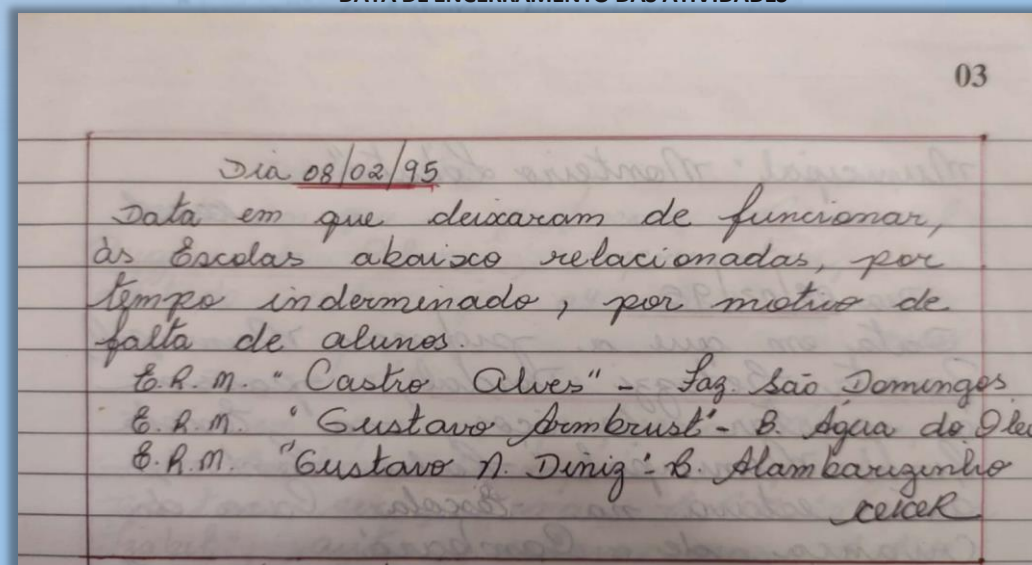 DATA DE ENCERRAMENTO DAS ATIVIDADES
03
Dia 08/02/95
Data em que deixaram de funcionar,
às Escolas abaixo relacionadas, por
tempo inderminado, por motivo de
falta de alunos.
E.R.M. "Castro Alves" - Faz. São Domingos
E.R.M. "Gustavo Armbrust" - B. Água do Óleo
E.R.M. "Gustavo N. Diniz" - B. Alambarizinho